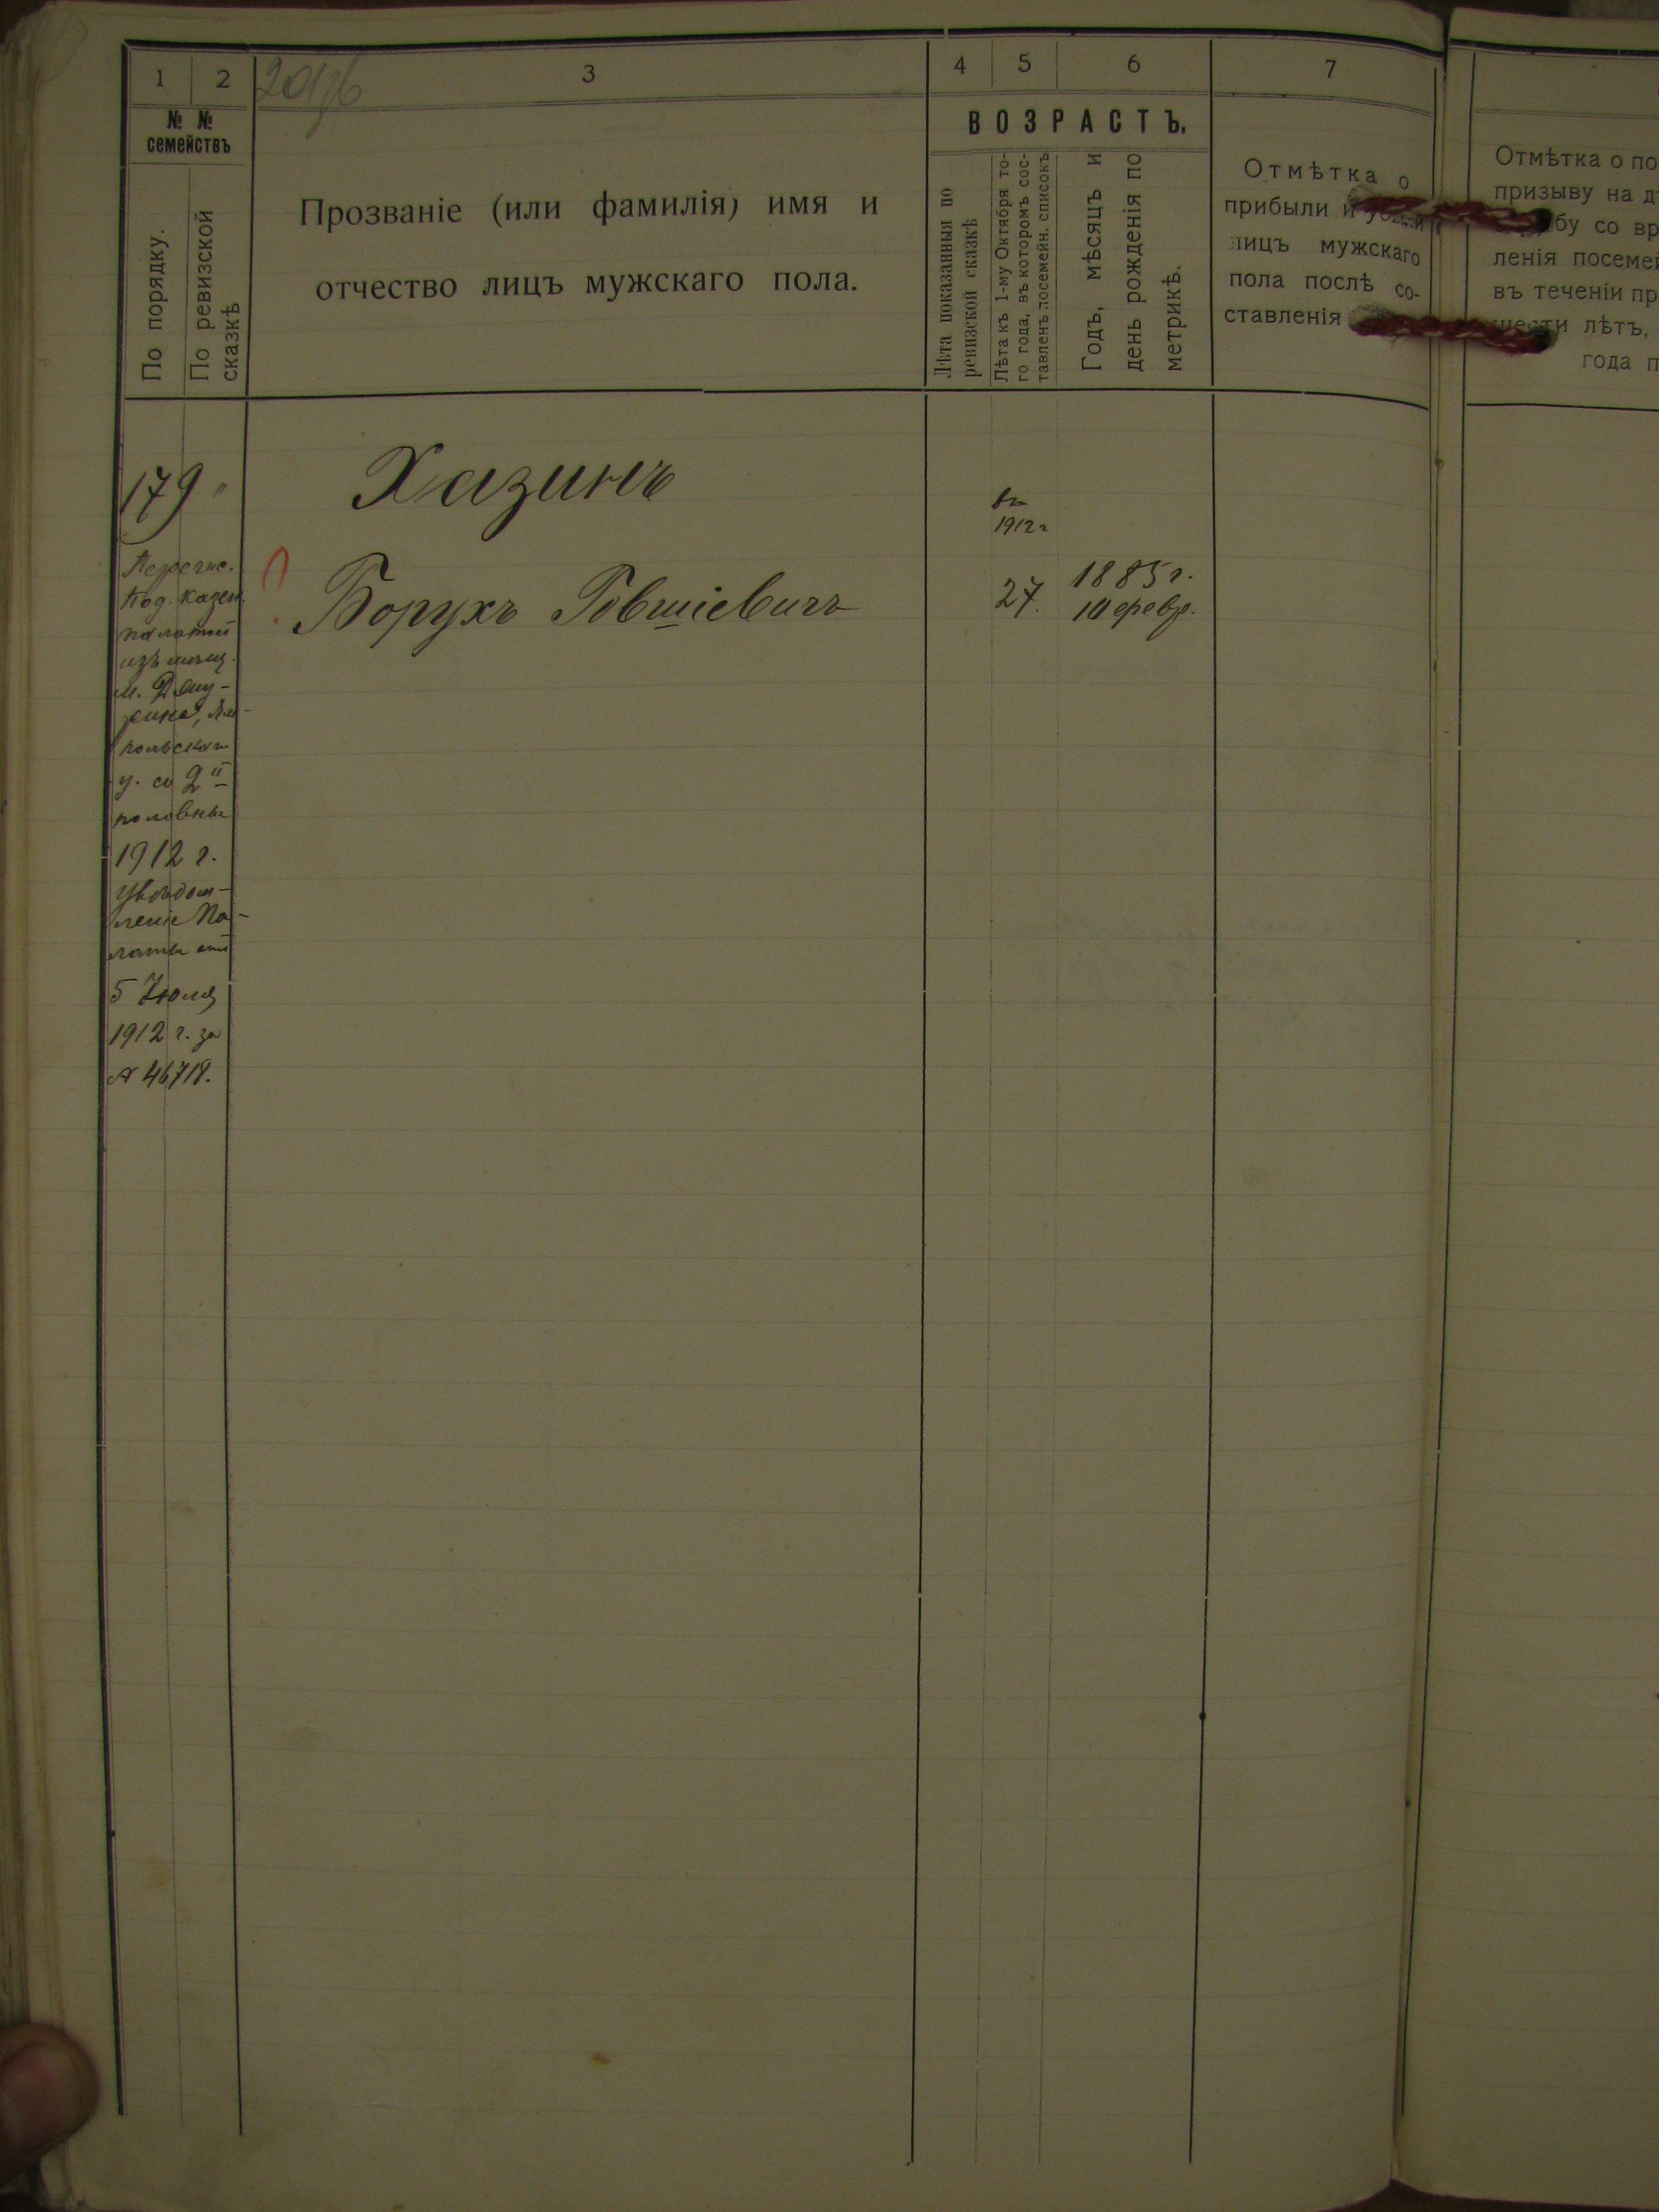 1 2 3 4 5 6 7
№ № семействъ
По порядку.
По ревизской сказкѣ
Прозваніе (или фамилія) имя и
отчество лицъ мужскаго пола.
ВОЗРАСТЪ.
Лѣта показанныя по
ревизской сказкѣ
Лѣта къ 1-му Октября то-
го года, въ которомъ сос-
тавленъ посемейн. списокъ
Годъ, мѣсяцъ и
день рожденія по
метрикѣ.
Отмѣтка о
прибыли и
лицъ мужскаго
пола послѣ со-
ставленія
Отмѣтка о по
призыву на д
бу со вр
ленія посемей
въ теченіи пр
шести лѣтъ,
года п
179
Хазинъ
въ
1912 г
Борухъ Іовшіевичъ
27.
1885 г.
10 февр.
Перечис.
Под. казен.
палатой
изъ мѣщ.
м.
польскаго
у. со 2й
половины
1912 г.
Увѣдом-
леніе Па-
латы отъ
5 Іюля
1912 г. за
№ 46718.